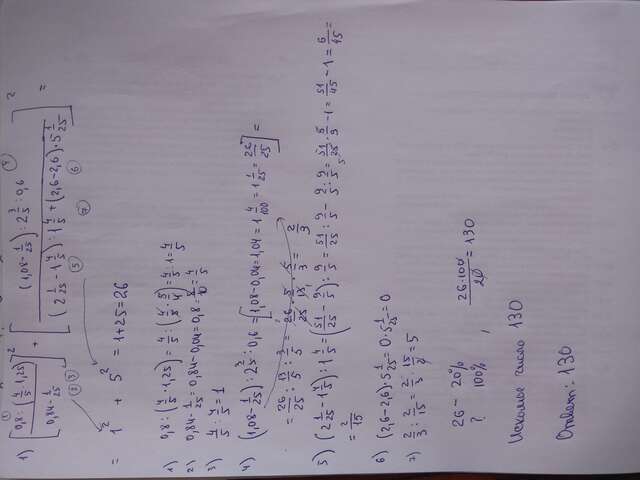 1) [0,8 : (4/5 · 1,25) / 0,84 - 1/25]² + [(1,08 - 1/25) : 2 3/5 : 0,6 / (2 1/25 - 1 4/5) : 1 4/5 + (2,6 - 2,6) · 5 1/25]² =
= 1² + 5² = 1 + 25 = 26
1) 0,8 : (4/5 · 1,25) = 4/5 : (4/5 · 5/4) = 4/5 : 1 = 4/5
2) 0,84 - 1/25 = 0,84 - 0,04 = 0,8 = 8/10 = 4/5
3) 4/5 : 4/5 = 1
4) (1,08 - 1/25) : 2 3/5 : 0,6 = [1,08 - 0,04 = 1,04 = 1 4/100 = 1 1/25 = 26/25] =
= 26/25 : 13/5 : 3/5 = 26/25 · 5/13 · 5/3 = 2/3
5) (2 1/25 - 1 4/5) : 1 4/5 = (51/25 - 9/5) : 9/5 = 51/25 : 9/5 - 9/5 : 9/5 = 51/25 · 5/9 - 1 = 51/45 - 1 = 6/45
= 2/15
6) (2,6 - 2,6) · 5 1/25 = 0 · 5 1/25 = 0
7) 2/3 : 2/15 = 2/3 · 15/2 = 5
26 - 20%
? 100%
26 · 100 / 20 = 130
Искомое число 130
Ответ: 130